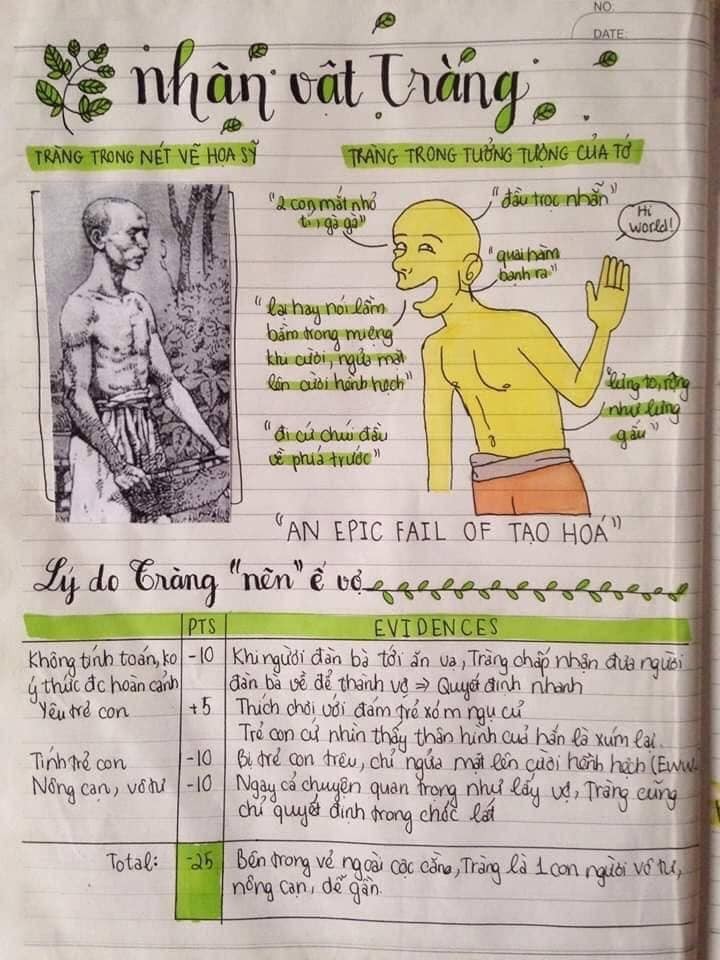 NO:
DATE:
nhân vật Tràng
TRÀNG TRONG NÉT VẼ HỌA SỸ
TRÀNG TRONG TƯỞNG TƯỢNG CỦA TỚ
"2 con mắt nhỏ
tí, gà gà"
"đầu trọc nhẵn"
Hi
World!
"quai hàm
bạnh ra"
"lại hay nói lầm
bầm trong miệng
khi cười, ngửa mặt
lên cười hềnh hệch"
"lưng to, rộng
như lưng
gấu"
"đi cứ chúi đầu
về phía trước"
"AN EPIC FAIL OF TẠO HOÁ"
Lý do Tràng "nên" ế vợ
PTS EVIDENCES
Không tính toán, ko
ý thức đc hoàn cảnh
-10
Khi người đàn bà tới ăn vạ, Tràng chấp nhận đưa người
đàn bà về để thành vợ => Quyết định nhanh
Yêu trẻ con +5 Thích chơi với đám trẻ xóm ngụ cư
Trẻ con cứ nhìn thấy thân hình của hắn là xúm lại.
Tính trẻ con -10 Bị trẻ con trêu, chỉ ngửa mặt lên cười hềnh hệch (Eww
Nông cạn, vô tư -10 Ngay cả chuyện quan trọng như lấy vợ, Tràng cũng
chỉ quyết định trong chốc lát
Total: -25 Bên trong vẻ ngoài cọc cằn, Tràng là 1 con người vô tư,
nông cạn, dễ gần.